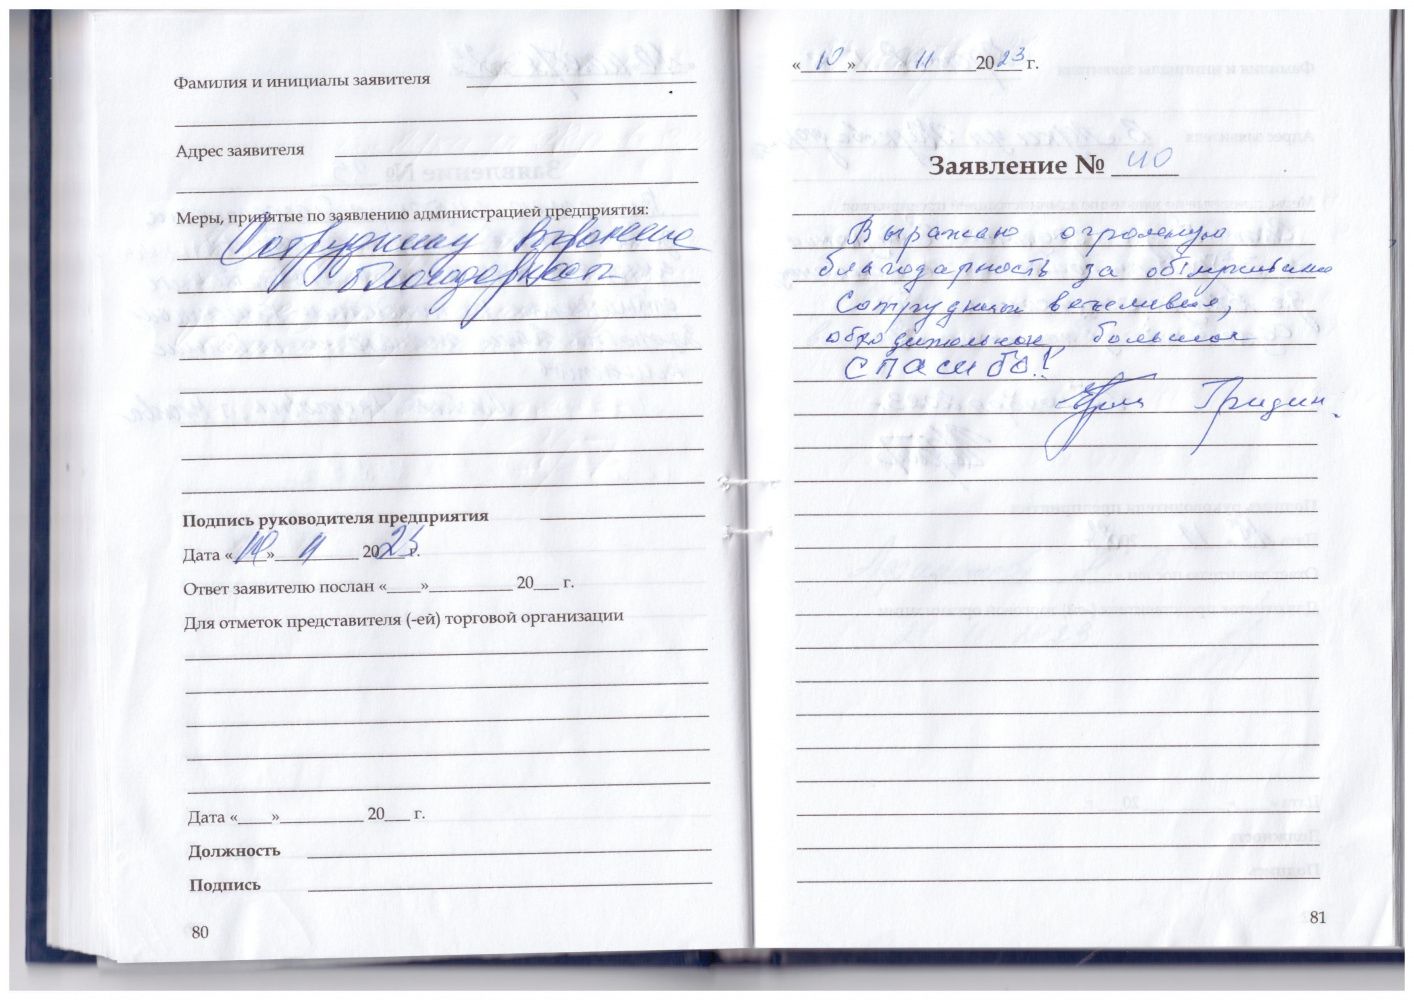 Фамилия и инициалы заявителя
Адрес заявителя
Меры, принятые по заявлению администрацией предприятия:
Сотруднику
благодарность
Подпись руководителя предприятия
Дата «10» 11 2023 г.
Ответ заявителю послан «____»__________ 20___ г.
Для отметок представителя (-ей) торговой организации
Дата «____»__________ 20___ г.
Должность
Подпись
80
«10» 11 2023 г.
Заявление № 40
Выражаю огромную
благодарность за обслуживание
Сотрудники вежливые,
обходительные, большое
СПАСИБО!
Гридин
81